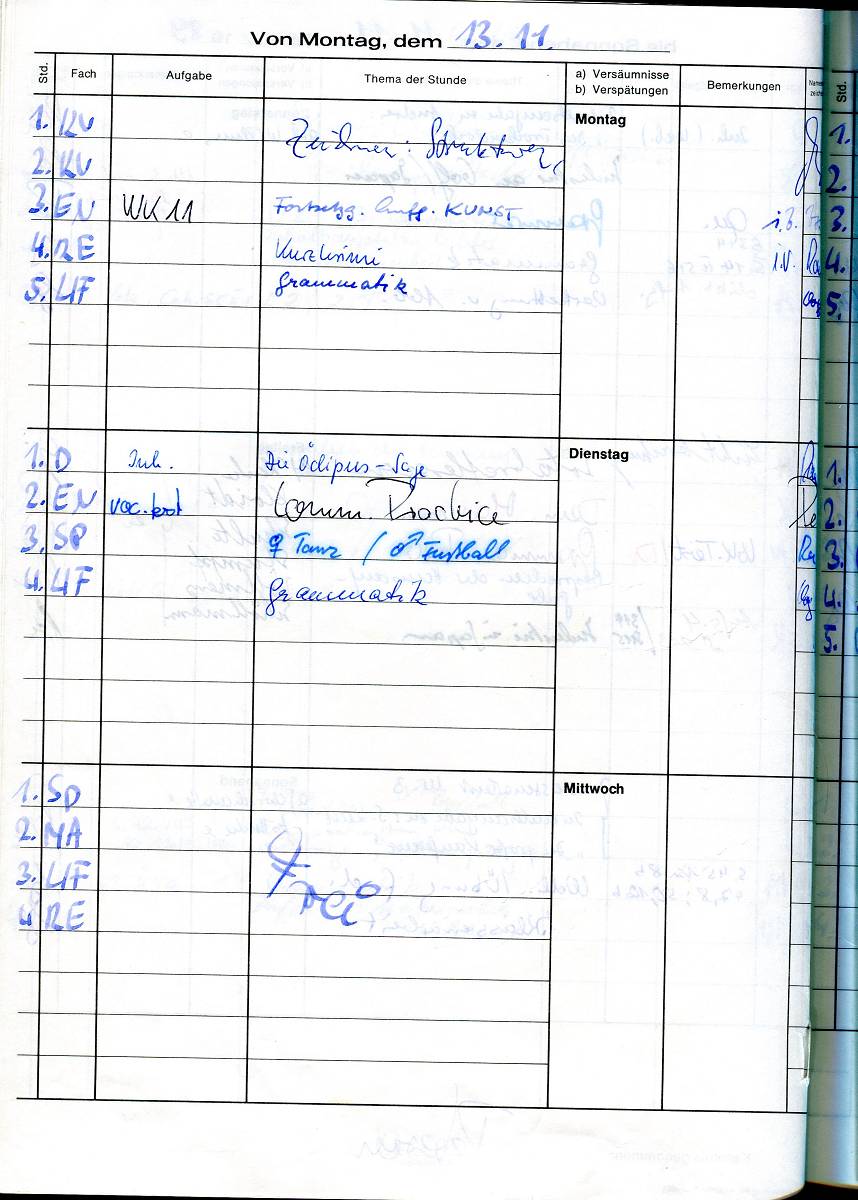 Von Montag, dem 13.11.
Std. Fach Aufgabe Thema der Stunde a) Versäumnisse Bemerkungen Std.
b) Verspätungen
Montag
1. KU Zeichnen: Strukturen 1.
2. KU 2.
3. EN WK 11 Fortsetzg. KUNST 3.
4. RE Kurzkrimi i.V. 4.
5. LIF Grammatik 5.
Dienstag
1. D Inh. Die Ödipus-Sage 1.
2. EN Voc. Comm. Practice 2.
3. SP ♀ Tanz / ♂ Fußball 3.
4. LIF Grammatik 4.
5.
Mittwoch
1. SP
2. MA
3. LIF Frei
4. RE